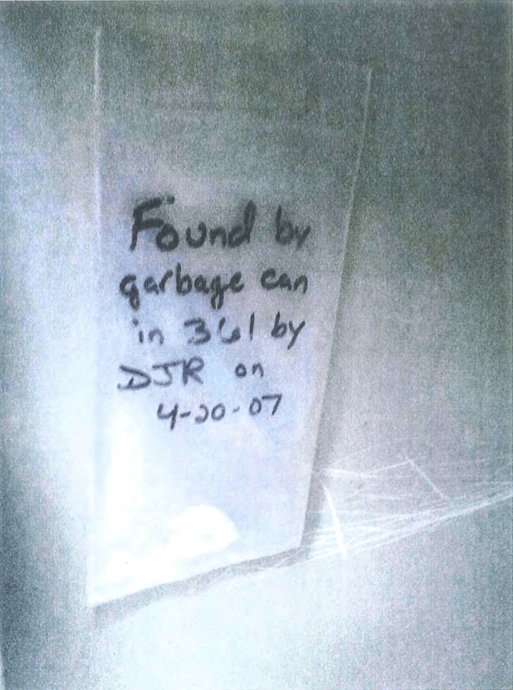 Found by
garbage can
in 361 by
DJR on
4-20-07